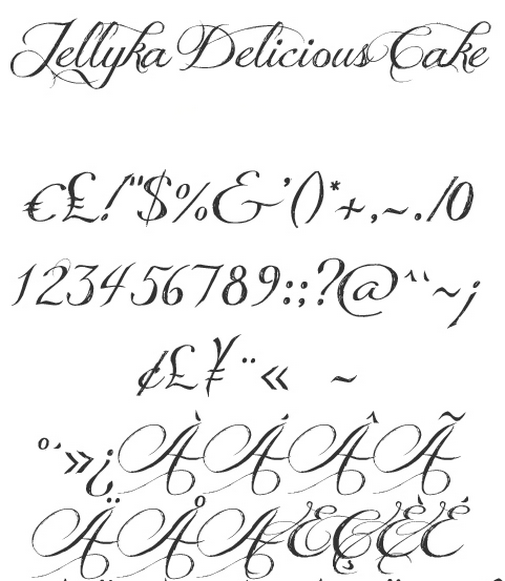 Jellyka Delicious Cake
€£!"$%&'()*+,~./0
123456789:;?@^`~¡
¢£¥¨« ~
º´»¿ÀÁÂÃ
ÄÅAÆÇÈÉ